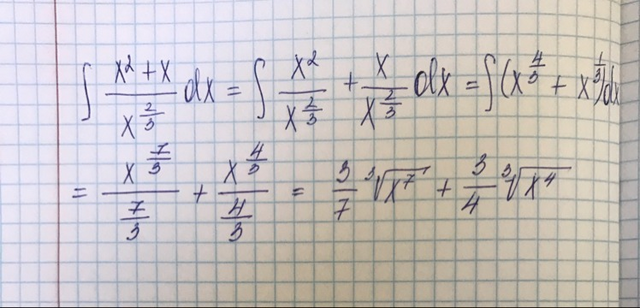 ∫ (x² + x)/(x^(2/3)) dx = ∫ x²/(x^(2/3)) + x/(x^(2/3)) dx = ∫(x^(4/3) + x^(1/3))dx
= (x^(7/3))/(7/3) + (x^(4/3))/(4/3) = 3/7 ³√(x⁷) + 3/4 ³√(x⁴)